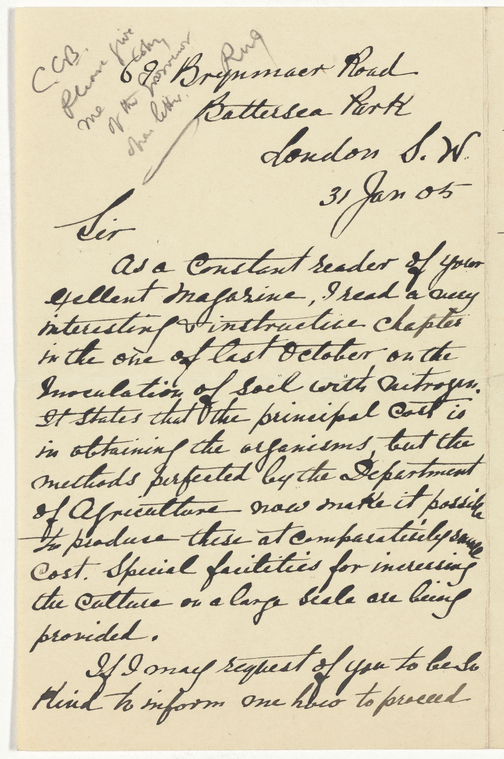 C.C.B.
Please give
me
of the
letter.
Brynmaer Road
Battersea Park
London S.W.
31 Jan 05
Sir
As a constant reader of your
exellent magazine, I read a very
interesting & instructive chapter
in the one of last October on the
Inoculation of Soil with Nitrogen.
It states that the principal cost is
in obtaining the organisms, but the
methods perfected by the Department
of Agriculture now make it possible
to produce these at comparatively small
cost. Special facilities for incressing
the culture on a large scale are being
provided.
If I may request of you to be so
kind to inform me how to proceed